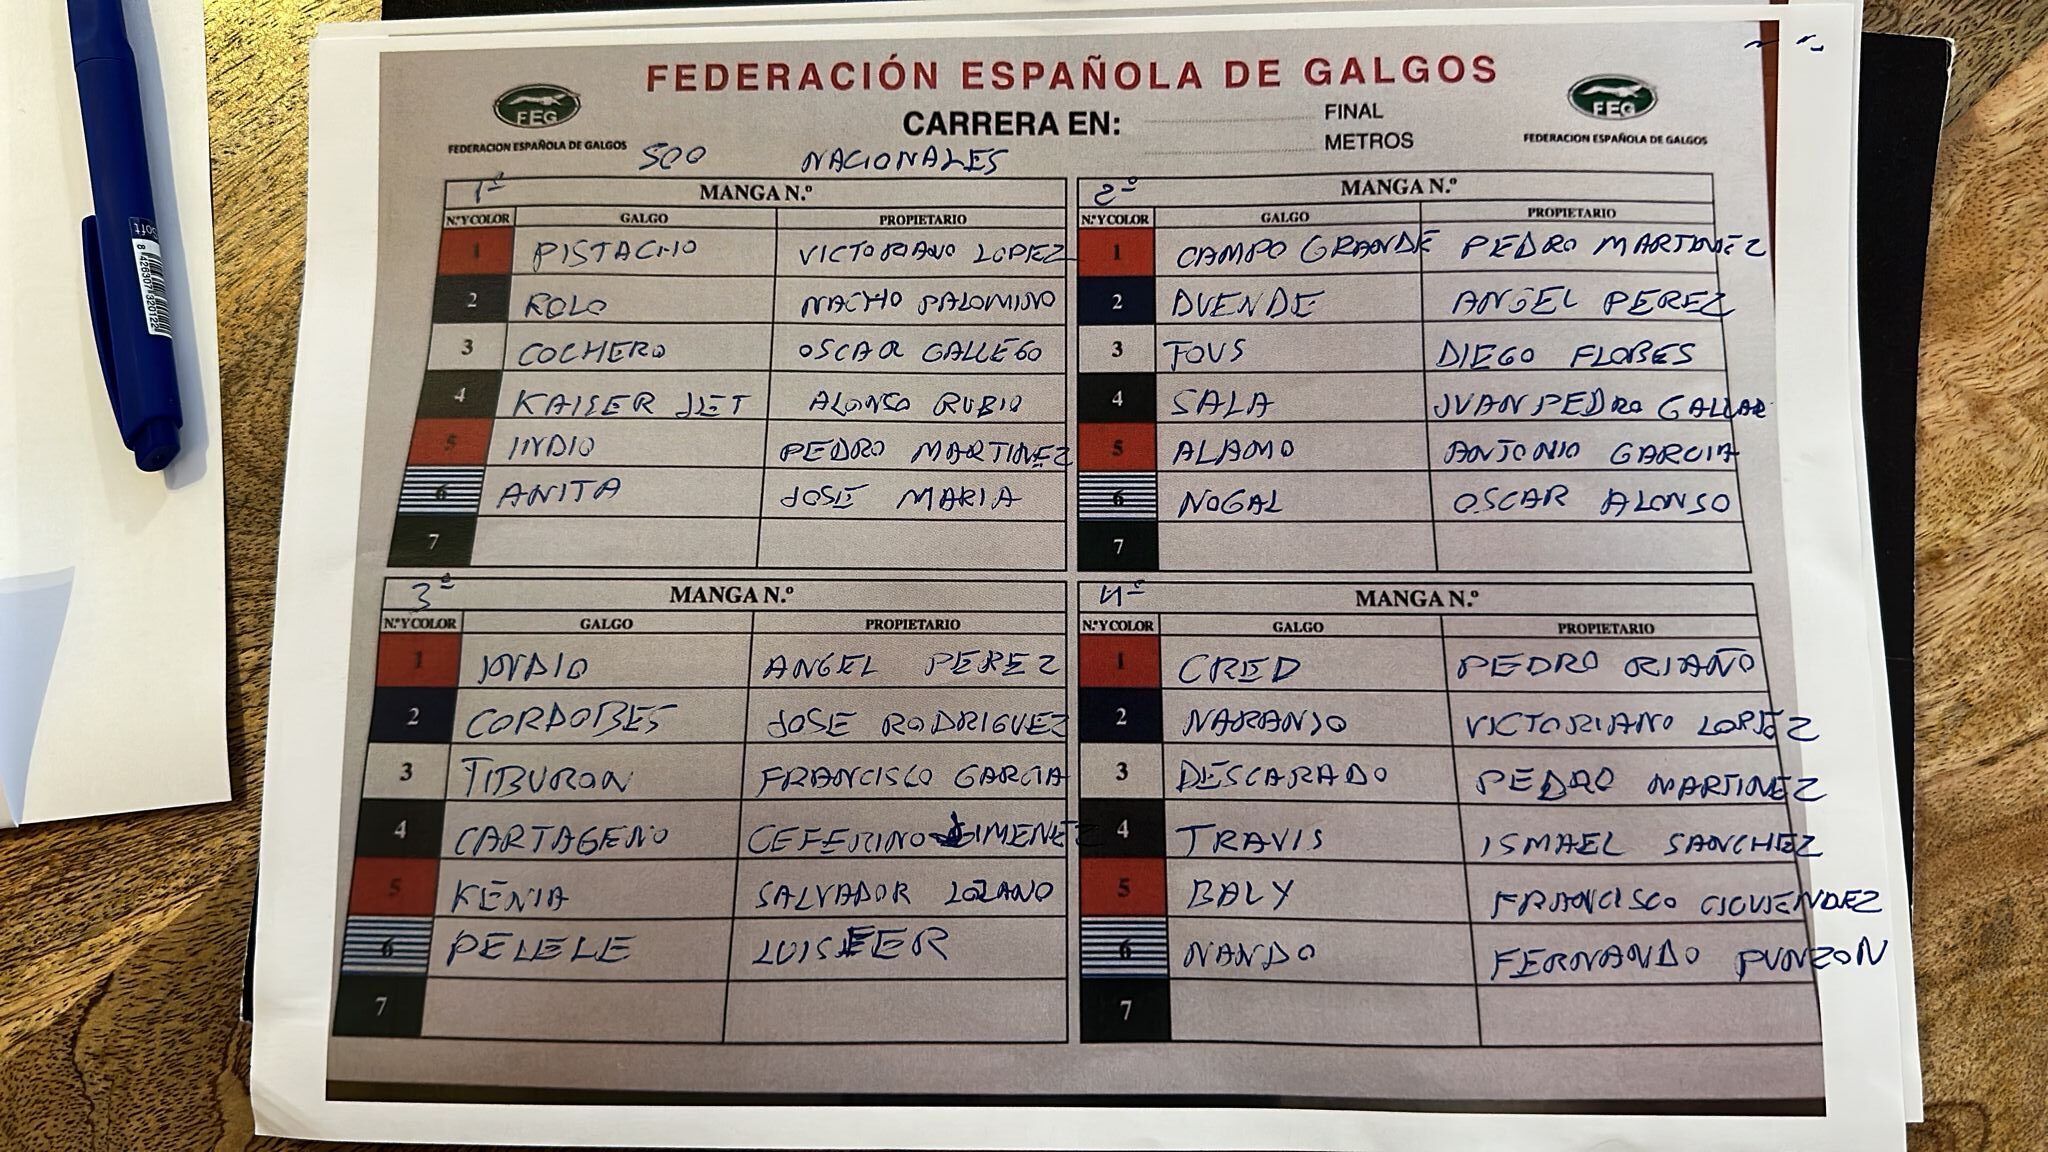 FEDERACIÓN ESPAÑOLA DE GALGOS
FEG
FEDERACION ESPAÑOLA DE GALGOS
CARRERA EN:
FINAL
METROS
FEG
FEDERACION ESPAÑOLA DE GALGOS
500 NACIONALES
1º MANGA N.º
N.º Y COLOR GALGO PROPIETARIO
1 PISTACHO VICTORIANO LOPEZ
2 ROLO NACHO PALOMINO
3 COCHERO OSCAR GALLEGO
4 KAISER JET ALONSO RUBIO
5 INDIO PEDRO MARTINEZ
6 ANITA JOSE MARIA
7
2º MANGA N.º
N.º Y COLOR GALGO PROPIETARIO
1 CAMPO GRANDE PEDRO MARTINEZ
2 DUENDE ANGEL PEREZ
3 TOUS DIEGO FLORES
4 SALA JUAN PEDRO GALLAR
5 ALAMO ANTONIO GARCIA
6 NOGAL OSCAR ALONSO
7
3º MANGA N.º
N.º Y COLOR GALGO PROPIETARIO
1 ANGEL PEREZ
2 CORDOBES JOSE RODRIGUEZ
3 TIBURON FRANCISCO GARCIA
4 CARTAGENO CEFERINO JIMENEZ
5 KENIA SALVADOR LOZANO
6 PELELE LUISFER
7
4º MANGA N.º
N.º Y COLOR GALGO PROPIETARIO
1 CRED PEDRO RIAÑO
2 NARANJO VICTORIANO LOPEZ
3 DESCARADO PEDRO MARTINEZ
4 TRAVIS ISMAEL SANCHEZ
5 BALY FRANCISCO
6 NANDO FERNANDO PUNZON
7
Soft
8 426307 320122